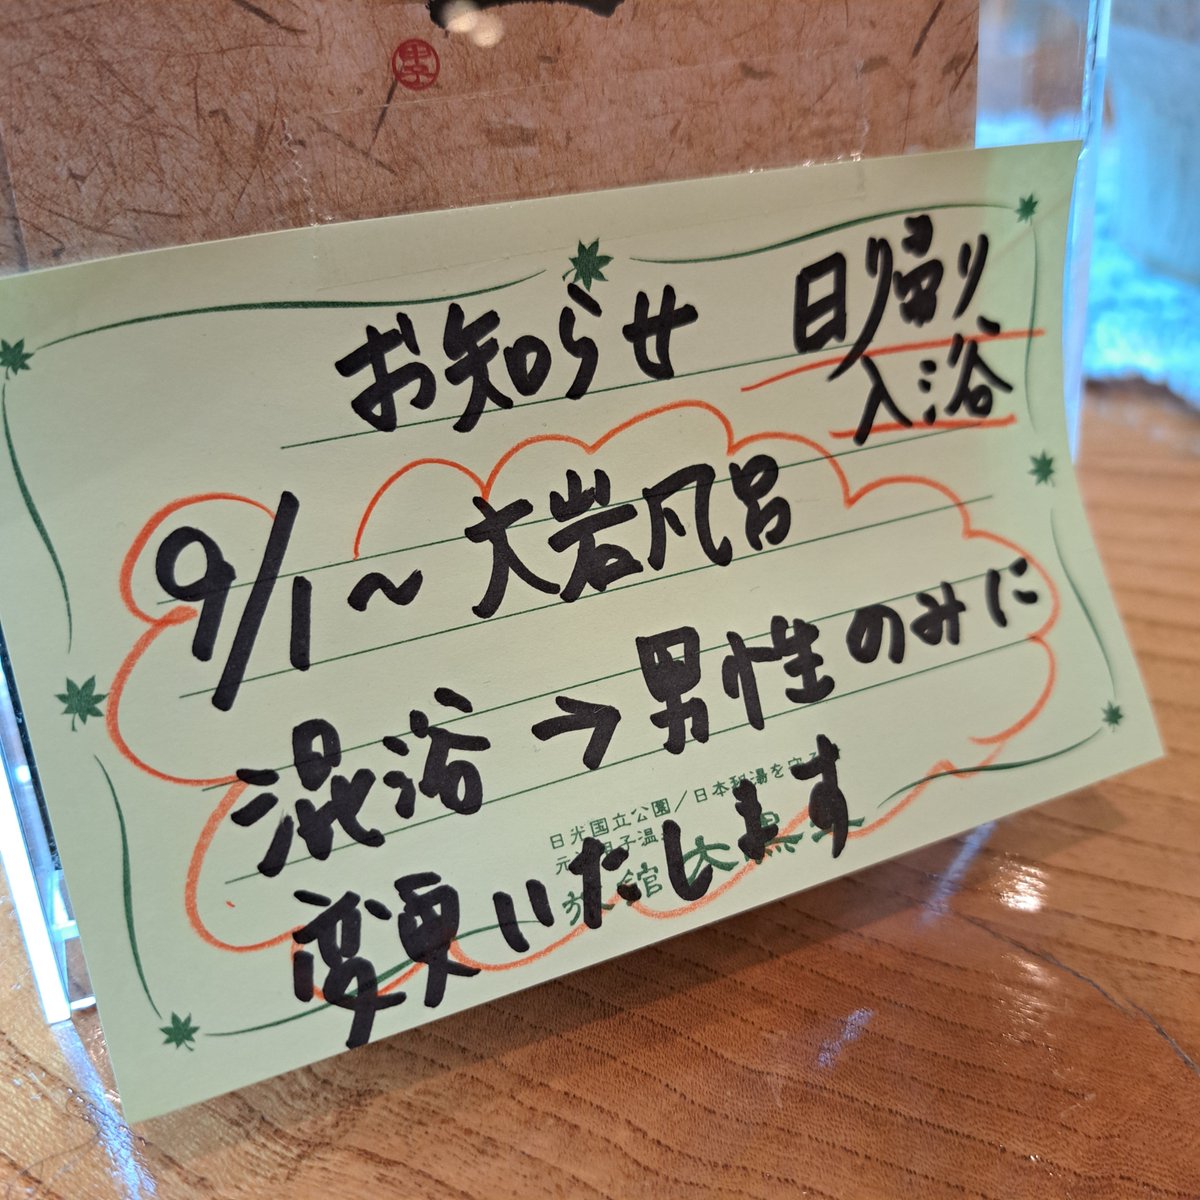 お知らせ
日帰り
入浴
9/1〜大岩風呂
混浴→男性のみに
変更いたします
日光国立公園／日本秘湯を守
元 甲子温
旅館 大黒屋